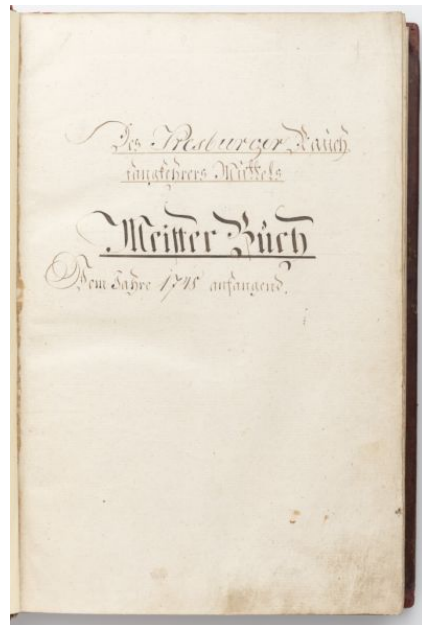 Des Presburger Rauch
fangkehrers Mittels
Meister Buch
Vom Jahre 1745 anfangend.